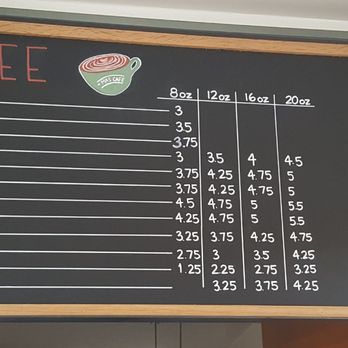 EE
MAS CAFE
8oz 12oz 16oz 20oz
3
3.5
3.75
3 3.5 4 4.5
3.75 4.25 4.75 5
3.75 4.25 4.75 5
4.5 4.75 5 5.5
4.25 4.75 5 5.5
3.25 3.75 4.25 4.75
2.75 3 3.5 4.25
1.25 2.25 2.75 3.25
3.25 3.75 4.25